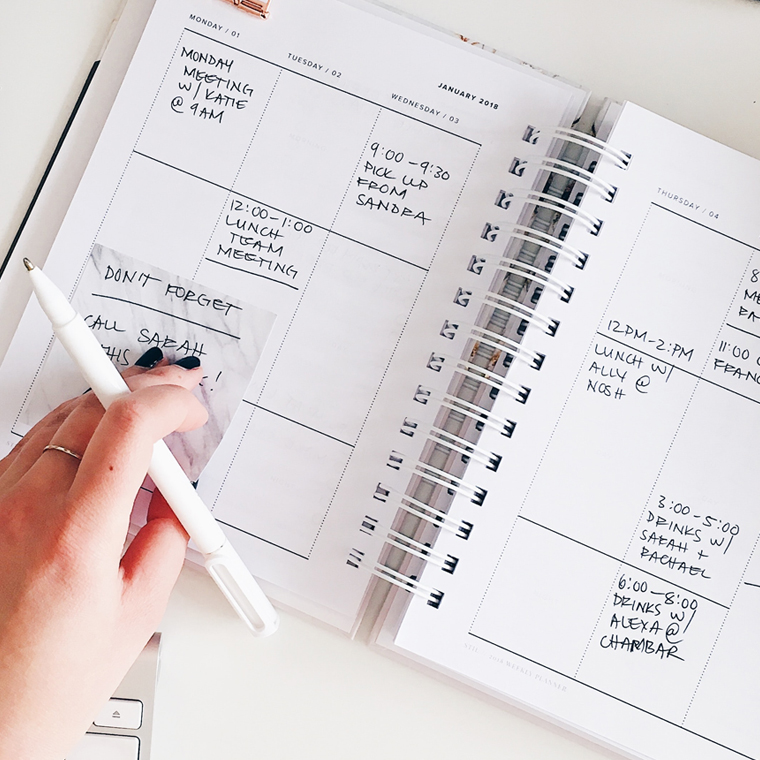 MONDAY / 01
MONDAY
MEETING
W/ KATIE
@ 9AM
TUESDAY / 02
12:00-1:00
LUNCH
TEAM
MEETING
JANUARY 2018
WEDNESDAY / 03
9:00-9:30
PICK UP
FROM
SANDRA
DON'T FORGET
CALL SARAH
THURSDAY / 04
12PM-2:PM
LUNCH W/
ALLY @
NOSH
3:00-5:00
DRINKS W/
SARAH +
RACHAEL
6:00-8:00
DRINKS W/
ALEXA @
CHAMBAR
WEEKLY PLANNER